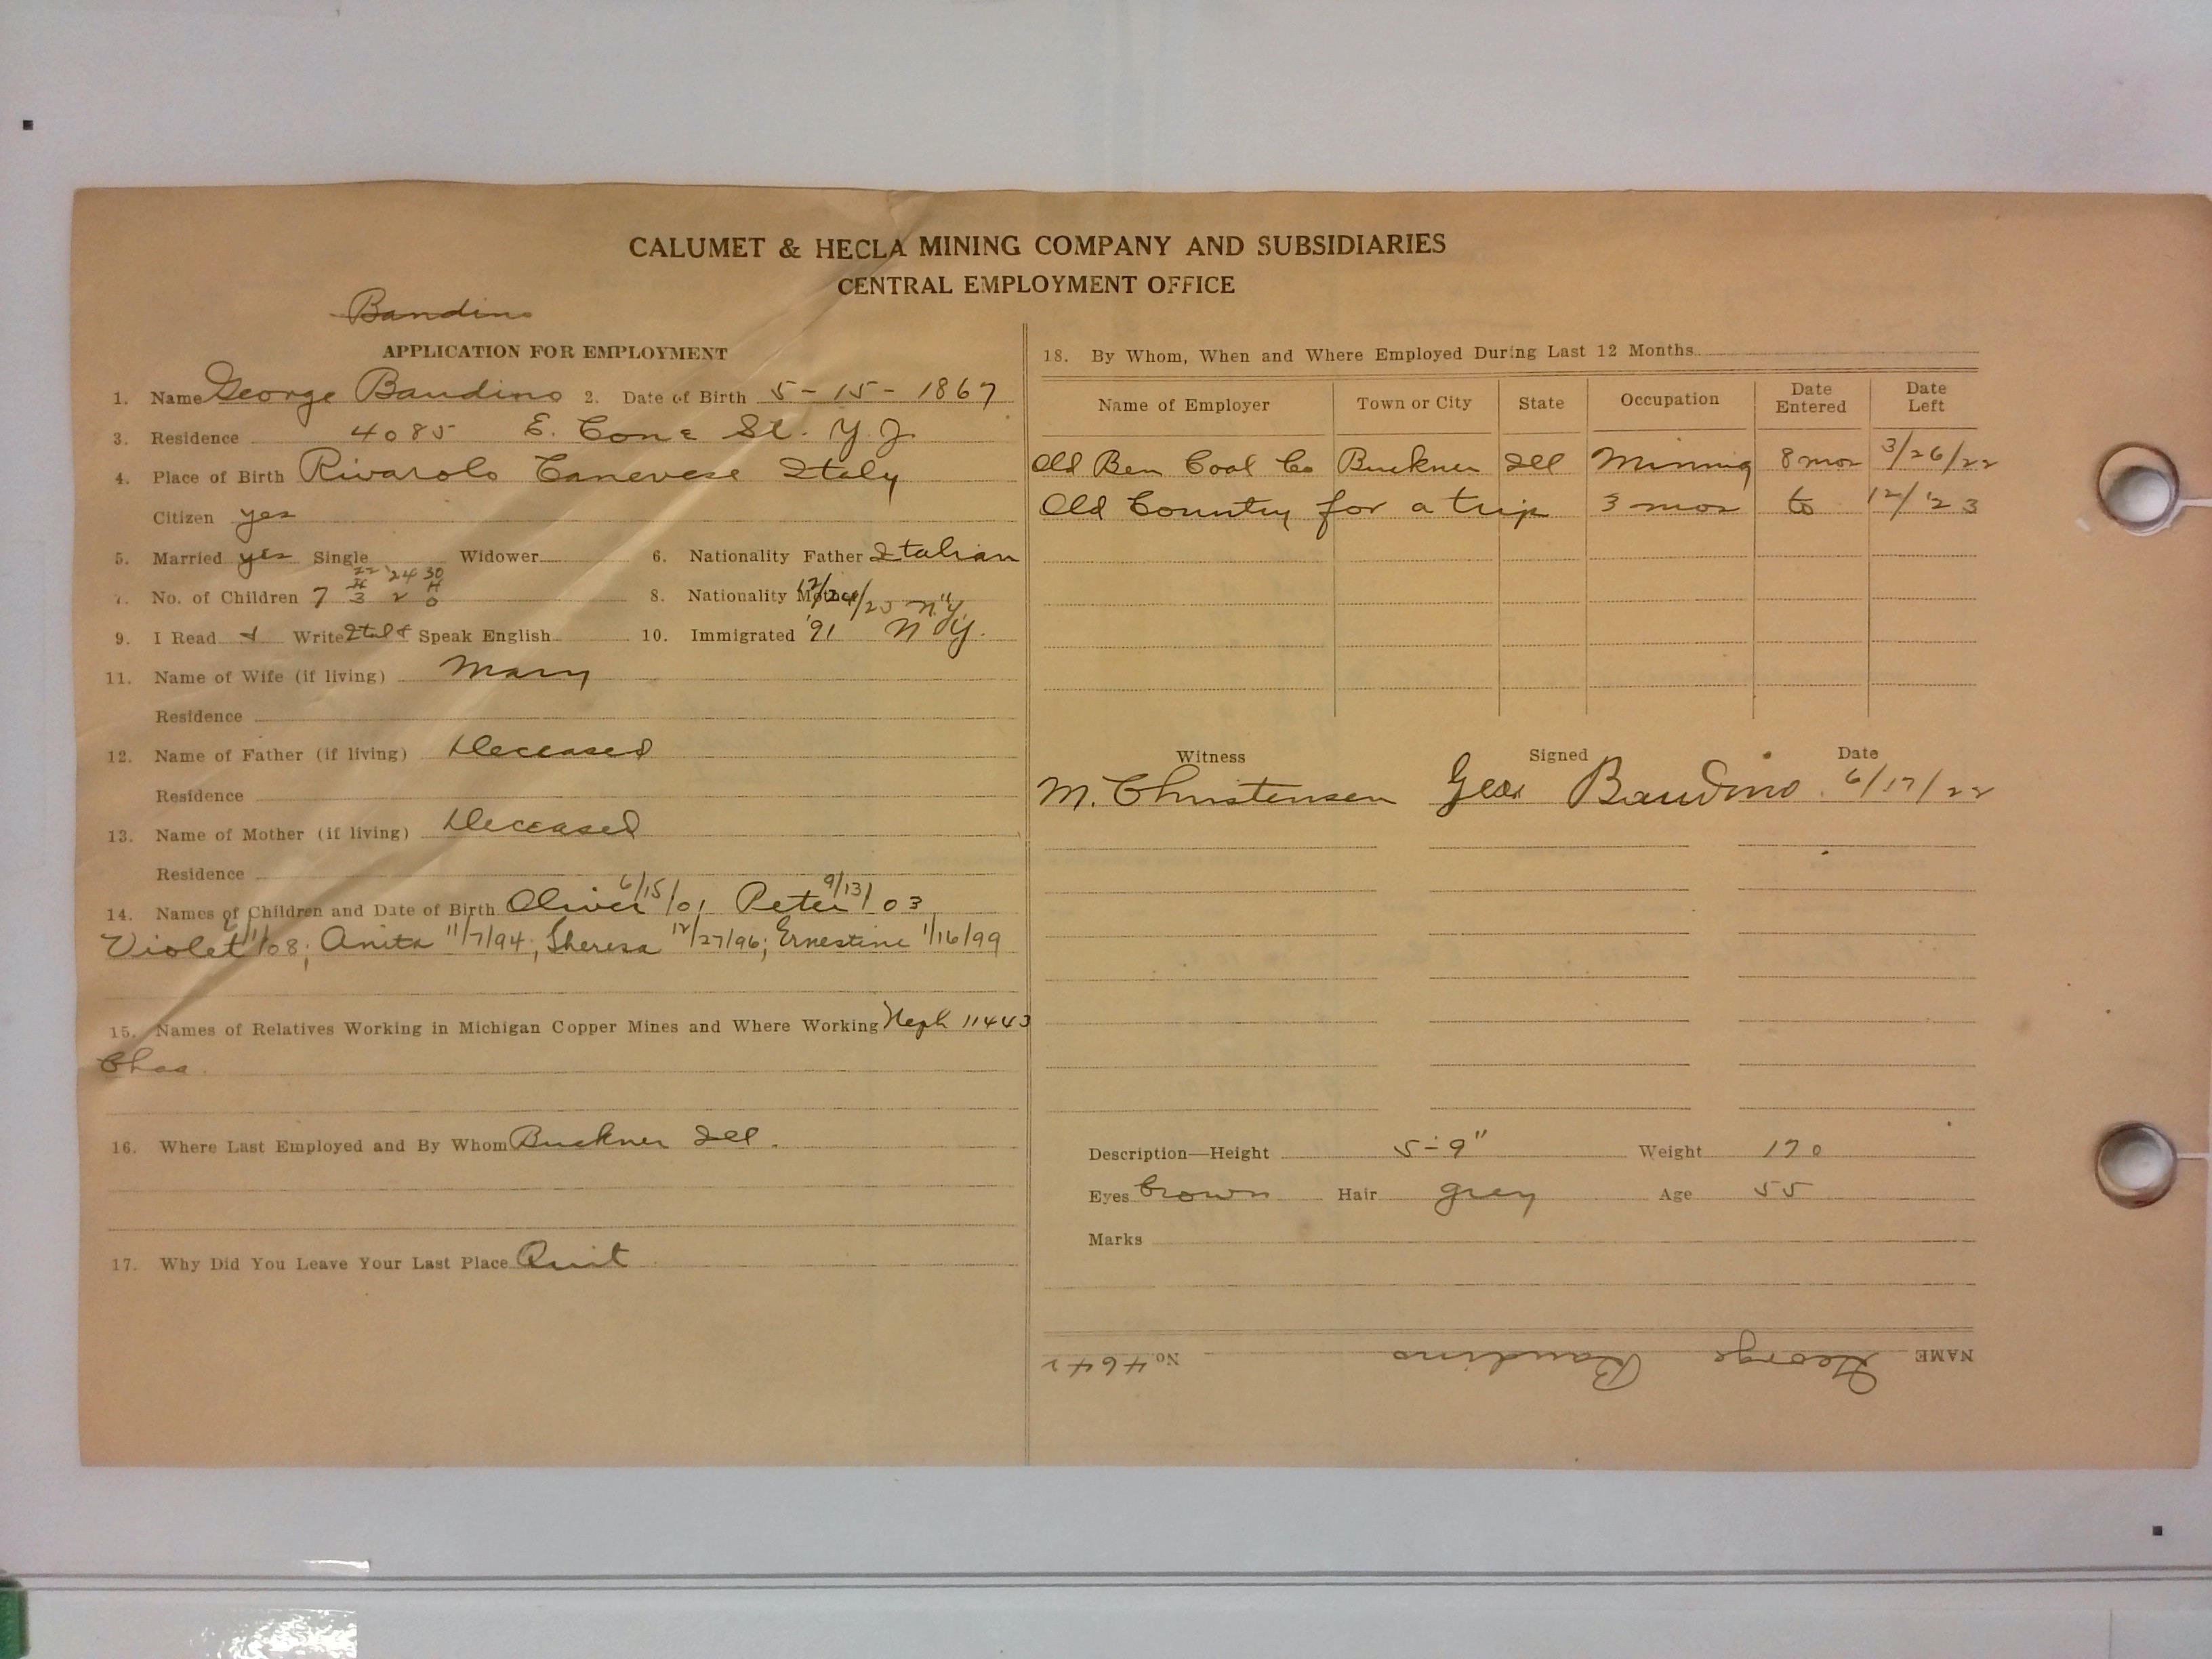 CALUMET & HECLA MINING COMPANY AND SUBSIDIARIES
CENTRAL EMPLOYMENT OFFICE
Bandino
APPLICATION FOR EMPLOYMENT
1. Name George Baudino 2. Date of Birth 5-15-1867
3. Residence 4085 E. Cone St. Y J
4. Place of Birth Rivarolo Canevese Italy
Citizen yes
5. Married yes Single Widower 6. Nationality Father Italian
22 '24 30
7. No. of Children 7 3 2 0 8. Nationality Mother
12/24/23 N.Y.
9. I Read & Write Ital & Speak English 10. Immigrated '91 N.Y.
11. Name of Wife (if living) Mary
Residence
12. Name of Father (if living) Deceased
Residence
13. Name of Mother (if living) Deceased
Residence
14. Names of Children and Date of Birth Oliver 6/15/01 Peter 9/13/03
Violet /08; Anita 11/7/94; Theresa 12/27/96; Ernestine 1/16/99
15. Names of Relatives Working in Michigan Copper Mines and Where Working Neph 11443
Chas.
16. Where Last Employed and By Whom Buckner Ill.
17. Why Did You Leave Your Last Place Quit
18. By Whom, When and Where Employed During Last 12 Months
Name of Employer Town or City State Occupation Date Entered Date Left
Old Ben Coal Co Buckner Ill Mining 8 mos 3/26/22
Old Country for a trip 3 mos to 12/'23
Witness Signed Date
M. Christensen Geo Baudino 6/17/22
Description—Height 5-9" Weight 170
Eyes brown Hair grey Age 55
Marks
NAME George Baudino No 4642